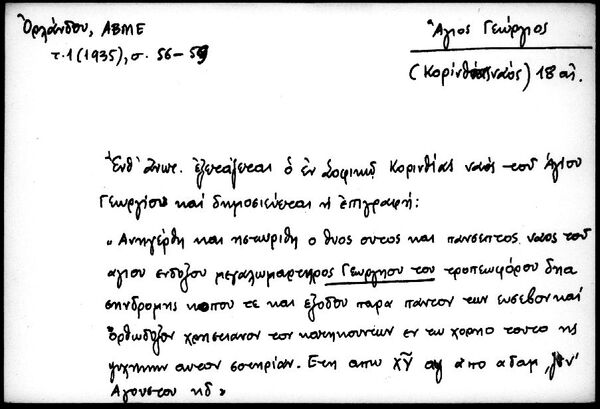 Ὀρλάνδου, ΑΒΜΕ
τ.1 (1935), σ. 56-59
Ἅγιος Γεώργιος
(Κορίνθ ναός) 18 αἰ.
Ἐνθ' ἀνωτ. ἐξετάζεται ὁ ἐν Σοφικῷ Κορινθίας ναός τοῦ Ἁγίου
Γεωργίου καί δημοσιεύεται ἡ ἐπιγραφή:
"Ανηγέρθη και ηστωριθη ο θυος ουτος και πανσεπτος ναος του
αγιου ενδοξου μεγαλωμαρτηρος Γεωργηου του τροπεωφόρου δηα
σηνδρομης κοπου τε και εξοδου παρα παντον των ευσεβον καί
ὀρθωδοξον χρησειανον τον κατηκουντων εν τω χορηο τουτο ης
ψυχηκην αυτον σοτηρίαν. Ετη απω χῡ απο αδαμ
Αγουστου ηδ"